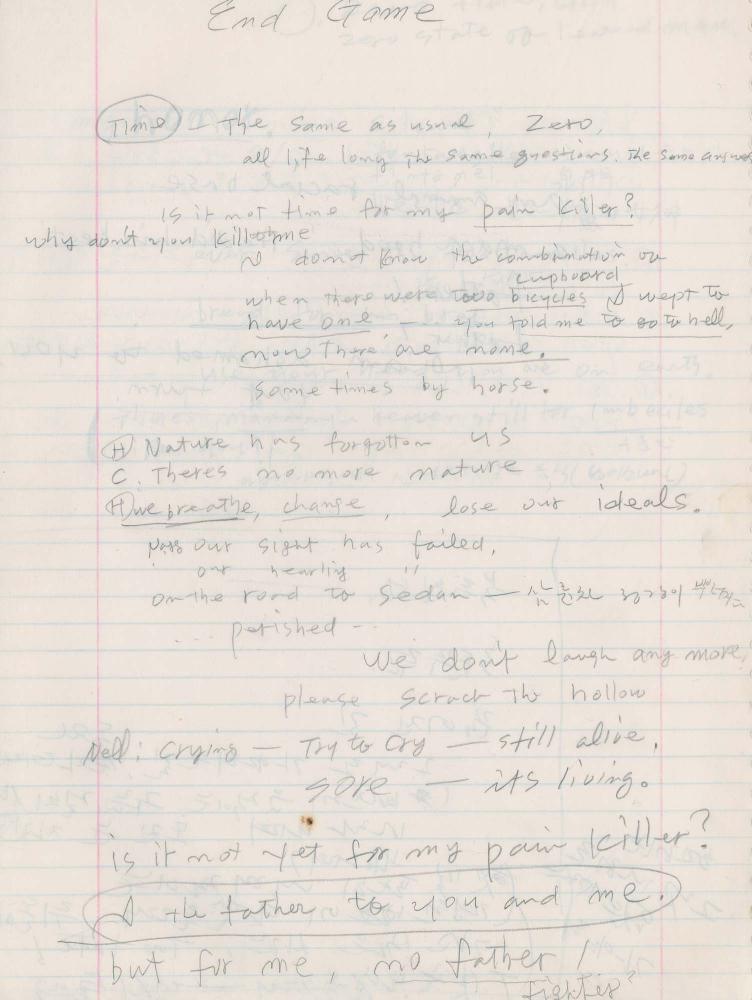 End Game
Time - The same as usual, Zero,
all life long the same questions. the same answer
Is it not time for my pain killer?
why don't you kill me
I do not know the combination of
cupboard
when there were two bicycles I wept to
have one. you told me to go to hell,
now there are none.
sometimes by horse.
H Nature has forgotton us
C. Theres no more nature
H we breathe, change, lose our ideals.
Nagg our sight has failed,
our hearing "
on the road to Sedan —
... perished -
We don't laugh any more,
please scract the hollow
Nell: Crying — Try to Cry — still alive,
sore — its living.
is it not yet for my pain killer?
I the father to you and me.
but for me, no father!
fighter?